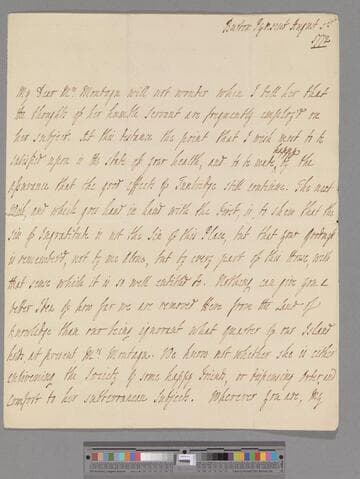 Burton Pynsent August 3d
1772
My Dear Mrs Montagu will not wonder when I tell her that
the thoughts of her humble servant are frequently employ'd on
her subject. At this distance the point that I wish most to be
satisfied upon is the state of your health, and to be made happy by the
assurance that the good effects of Tunbridge still continue. The next
wish, and which goes hand in hand with the first, is, to shew that the
sin of Ingratitude is not the Sin of this Place, but that your goodness
is remember'd, not by me alone, but by every part of this House with
that sense which it is so well entitled to. Nothing can give you a
better Idea of how far we are removed Here from the Land of
Knowledge than our being ignorant what quarter of our Island
holds at present Mrs Montagu. We know not whether she is either
enlivening the Society of some happy Friends, or dispensing Order, and
Comfort to her subterranean Subjects. Wherever you are, My